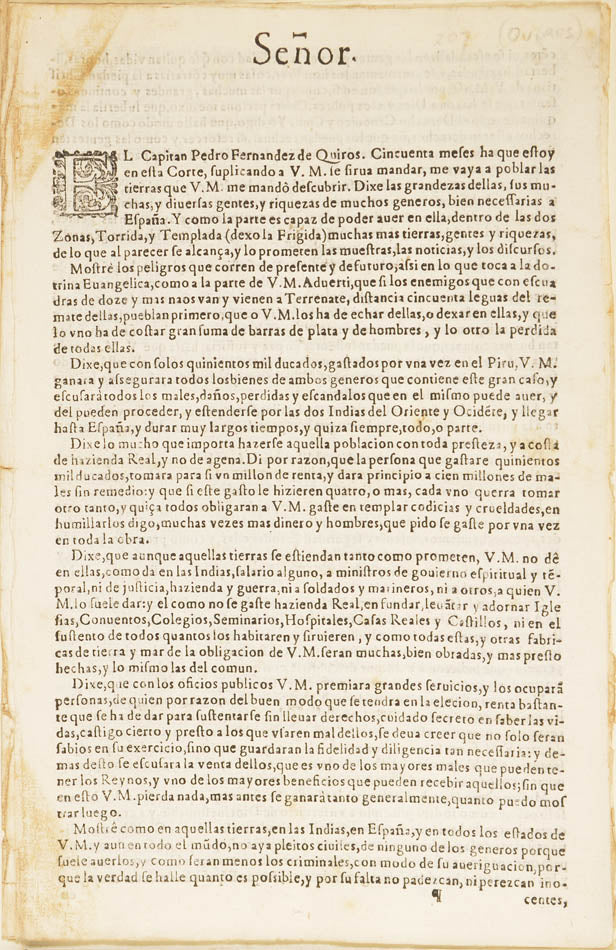 (QUIROS)
Señor.
EL Capitan Pedro Fernandez de Quiros. Cincuenta meses ha que estoy
en esta Corte, suplicando a V. M. se sirua mandar, me vaya a poblar las
tierras que V. M. me mandò descubrir. Dixe las grandezas dellas, sus mu-
chas, y diuersas gentes, y riquezas de muchos generos, bien necessarias a
España. Y como la parte es capaz de poder auer en ella, dentro de las dos
Zonas, Torrida, y Templada (dexo la Frigida) muchas mas tierras, gentes y riquezas,
de lo que al parecer se alcança, y lo prometen las muestras, las noticias, y los discursos.
Mostrè los peligros que corren de presente y defuturo, assi en lo que toca a la do-
trina Euangelica, como a la parte de V. M. Aduerti, que si los enemigos que con escua
dras de doze y mas naos van y vienen a Terrenate, distancia cincuenta leguas del re-
mate dellas, pueblan primero, que o V.M. los ha de echar dellas, o dexar en ellas, y que
lo vno ha de costar gran suma de barras de plata y de hombres, y lo otro la perdida
de todas ellas.
Dixe, que con solos quinientos mil ducados, gastados por vna vez en el Piru, V. M.
ganara y assegurara todos losbienes de ambos generos que contiene este gran caso, y
escusarà todos los males, daños, perdidas y escandalos que en el mismo puede auer, y
del pueden proceder, y estenderse por las dos Indias del Oriente y Ocidéte, y llegar
hasta España, y durar muy largos tiempos, y quiza siempre, todo, o parte.
Dixe lo mucho que importa hazerse aquella poblacion con toda presteza, y a costa
de hazienda Real, y no de agena. Di por razon, que la persona que gastare quinientos
mil ducados, tomara para si vn millon de renta, y dara principio a cien millones de ma-
les sin remedio: y que si este gasto le hizieren quatro, o mas, cada vno querra tomar
otro tanto, y quiça todos obligaran a V. M. gaste en templar codicias y crueldades, en
humillarlos digo, muchas vezes mas dinero y hombres, que pido se gaste por vna vez
en toda la obra.
Dixe, que aunque aquellas tierras se estiendan tanto como prometen, V. M. no dè
en ellas, como da en las Indias, salario alguno, a ministros de gouierno espiritual y té-
poral, ni de justicia, hazienda y guerra, ni a soldados y marineros, ni a otros, a quien V.
M. lo suele dar: y el como no se gaste hazienda Real, en fundar, leuãtar y adornar Igle
sias, Conuentos, Colegios, Seminarios, Hospitales, Casas Reales y Castillos, ni en el
sustento de todos quantos los habitaren y siruieren, y como todas estas, y otras fabri-
cas de tierra y mar de la obligacion de V. M. seran muchas, bien obradas, y mas presto
hechas, y lo mismo las del comun.
Dixe, que con los oficios publicos V. M. premiara grandes seruicios, y los ocuparã
personas, de quien por razon del buen modo que se tendra en la elecion, renta bastan-
te que se ha de dar para sustentarse sin lleuar derechos, cuidado secreto en saber las vi-
das, castigo cierto y presto a los que vsaren mal dellos, se deua creer que no solo seran
sabios en su exercicio, sino que guardaran la fidelidad y diligencia tan necessaria: y de-
mas desto se escusara la venta dellos, que es vno de los mayores males que pueden te-
ner los Reynos, y vno de los mayores beneficios que pueden recebir aquellos; sin que
en esto V. M. pierda nada, mas antes se ganarà tanto generalmente, quanto puedo mos
trar luego.
Mostrè como en aquellas tierras, en las Indias, en España, y en todos los estados de
V. M. y aun en todo el mũdo, no aya pleitos ciuiles, de ninguno de los generos porque
suele auerlos, y como seran menos los criminales, con modo de su aueriguacion, por-
que la verdad se halle quanto es possible, y por su falta no padezcan, ni perezcan ino-
¶ centes,